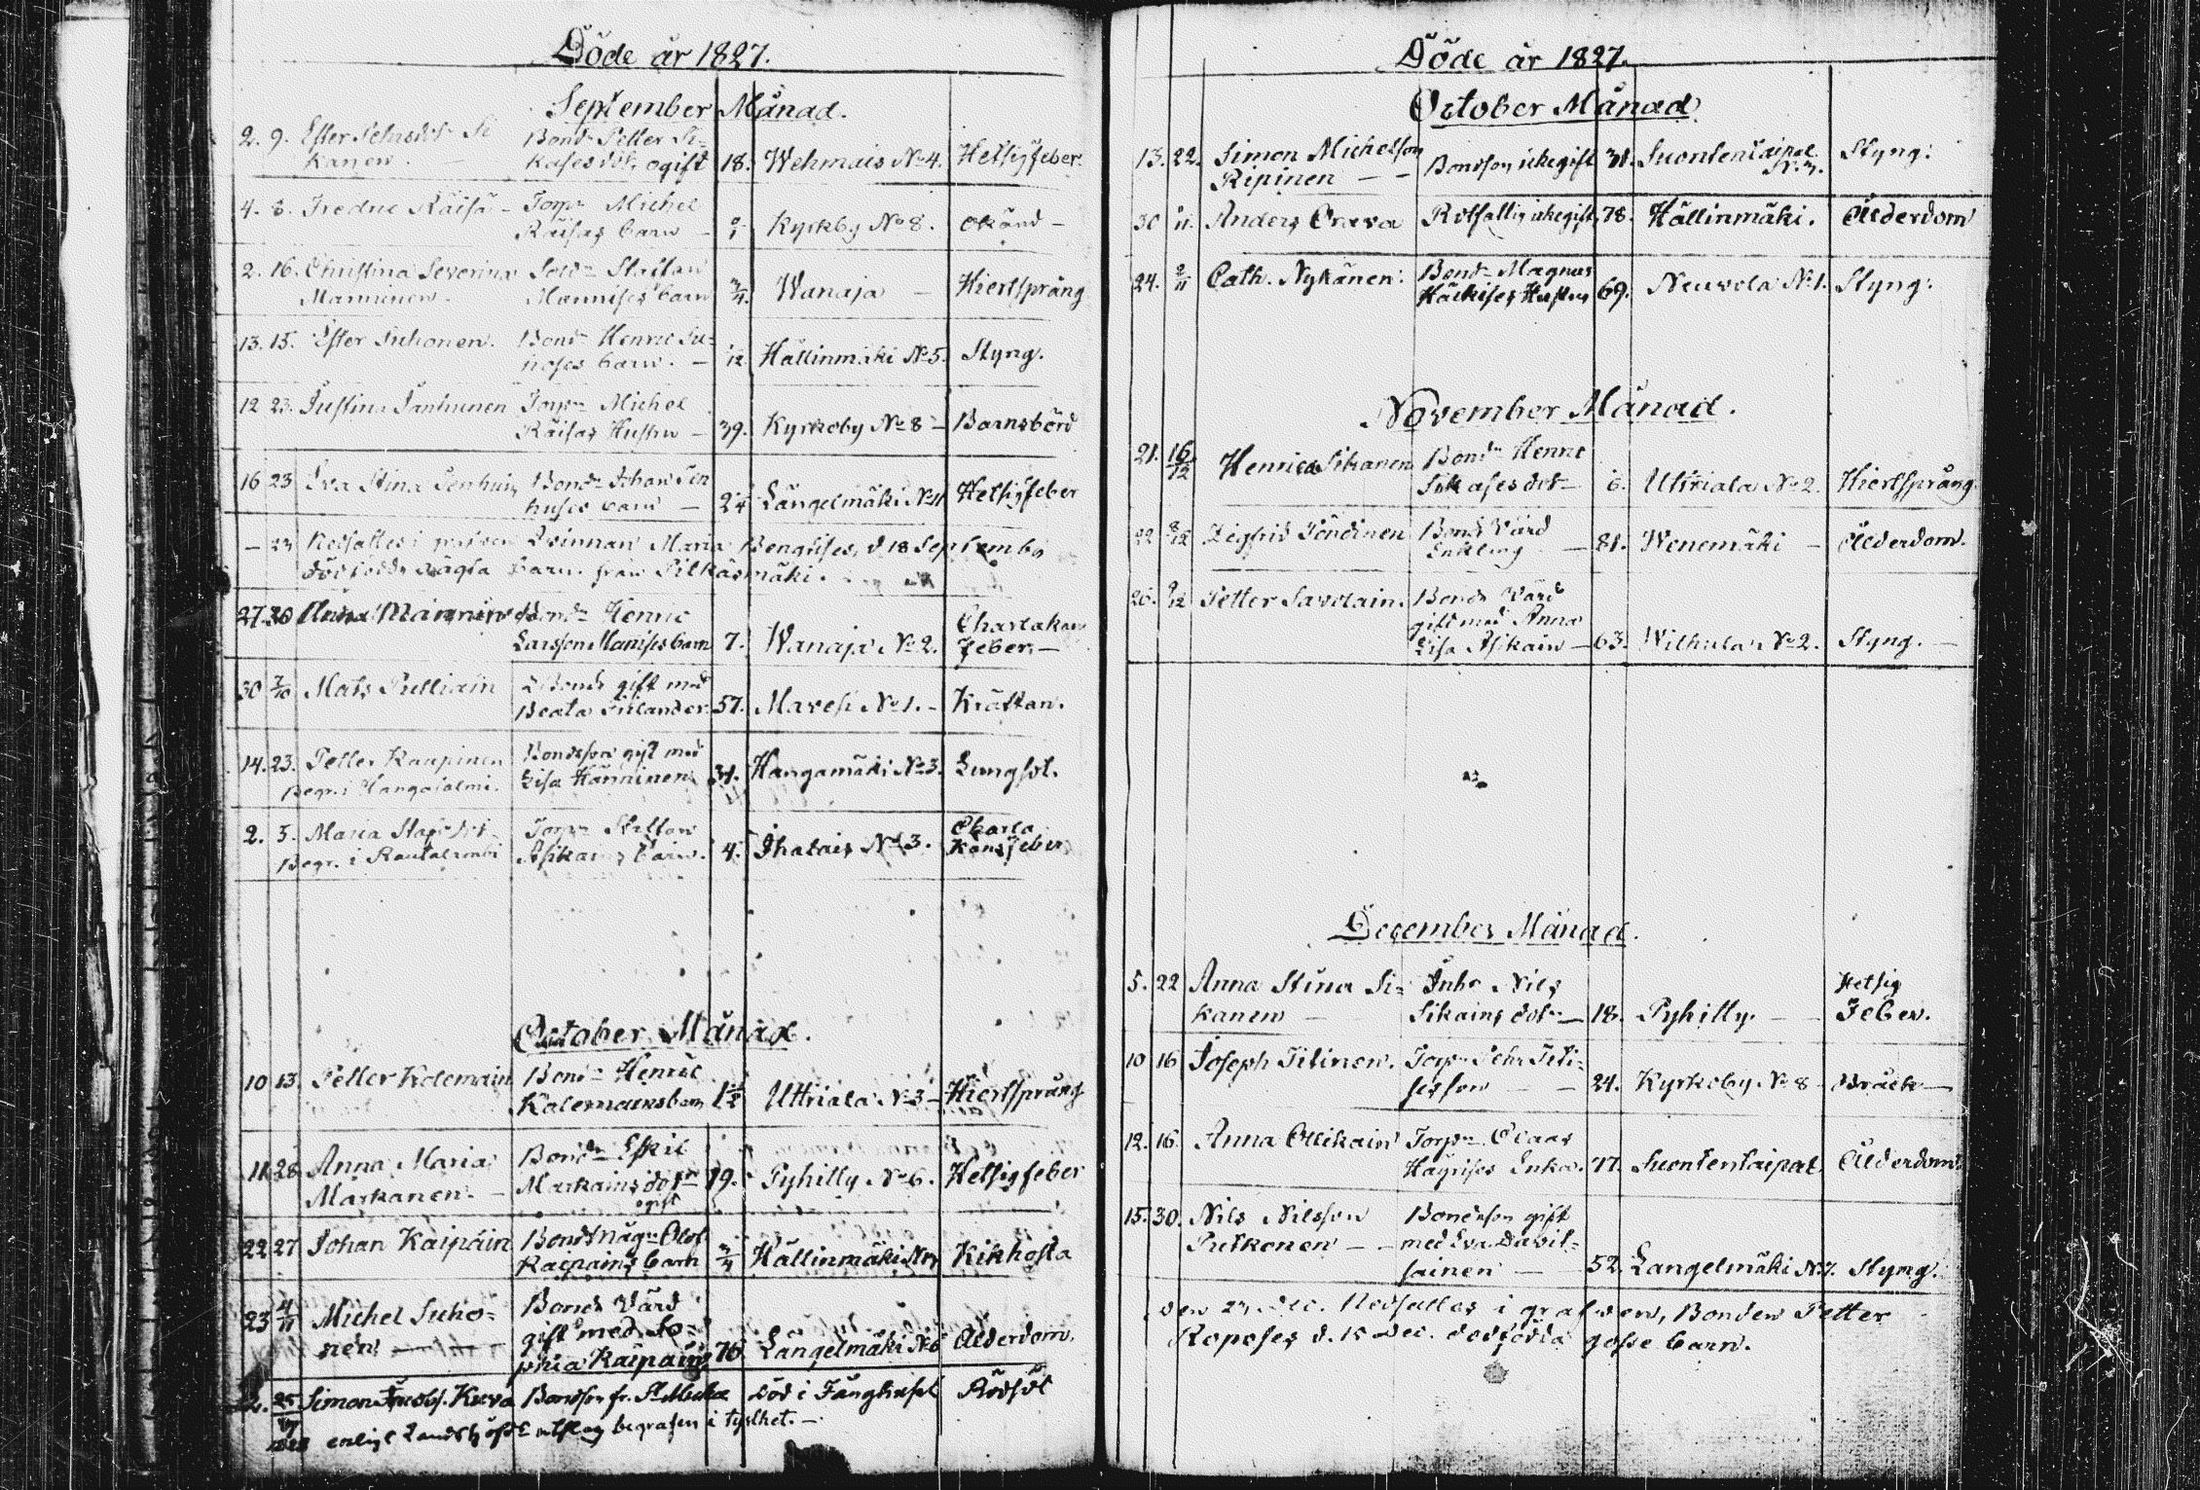 Döde år 1827.
September Månad.
2. 9. Ester Si
kanen. Bond. Petter Si-
kases dtr, ogift 18. Wehmais No 4. Hetsigfeber.
4. 8. Fredric Räisä - Torp. Michel
Räisas barn - Kyrkby No 8. okänd -
2. 16. Christina Severina Sold. Staffan
Manninen. Mannises barn 3/4. Wanaja - Hiertsprång
13. 15. Ester Suhonen. Bond. Henric Su-
hoses barn. - Hällinmäki No 5. Styng.
12 23. Justina Janhunen Torp. Michel
Räisas Hustru - 39. Kyrkoby No 8 - Barnsbörd
16 23 Eva Stina Bond. Johan
barn - Längelmäki Hetsigfeber
- Nedsattes i Qvinnan Maria d 18 September
dödfödde oägta barn från Silkäsmäki.
27. 30 Anna Manninen Bond. Henric
Larsson Manises barn 7. Wanaja No 2. Charlakans
feber. -
30 7/10 Mats Pulliain Bond. gift med
Beata 57. Maresi No 1. - Kräftan.
14. 23. Petter Kaupinen Bondeson gift med
Begr. i Hangasalmi. Lisa Hänninen Hangamäki No 3. Lungsot.
2. 5. Maria Torp. Staffan
Begr. i Rautalambi Asikains barn. 4. Ihalais No 3. Charla
kansfeber
October Månad.
10 13. Petter Kolemain Bond. Henric
Kolemains barn 1 1/2 Uttriala No 3 - Hiertsprång
11. 28 Anna Maria Bond. Eskil
Markanen. - Markains dotr
ogift 19. Pyhilly No 6. Hetsigfeber
22 27 Johan Kaipain Bondsmåg Olof
Kaipains barn 3/4 Hällinmäki Kikhosta
23 4/11 Michel Suho-
nen Bonds Värd
gift med So-
phia Kaipain 76 Längelmäki No 6 Ålderdom.
Simon Bondson fr. St Död i Fängelset Rödsot
1828 enligt Landshöfd. utslag begrafen i tysthet. -
Döde år 1827.
October Månad.
13. 22. Simon Michelson
Ripinen - - Bondson ickegift 31. Suontentaipal Styng.
30 Anders Orava Rotfattig ickegift 78. Hällinmäki. Ålderdom
24. 2/11 Cath. Nykänen. Bond. Magnus
Häckises Hustru 69. Neuvola No 1. Styng.
November Månad.
21. 16/12 Henrica Sikanen Bond. Henric
Sikases dtr - 6. Uttriala No 2. Hiertsprång.
22 8/12 Zigfrid Töndinen Bonds Värd
Enkling - 81. Wenemäki - Ålderdom.
26. 9/12 Petter Savolain. Bonds Värd
gift med Anna
Lisa Asikain - 63. Wilhula No 2. Styng. -
December Månad.
5. 22 Anna Stina Si-
kanen - Inhs Nils
Sikains dotr - 18. Pyhilly. - Hetsig
Feber.
10 16 Joseph Titinen. Torp. Pehr Titi-
sesson - - 24. Kyrkoby No 8 - Bråck -
12. 16. Anna Ollikain Torp. Claas
Häyrises Enka. 77. Suontentaipal Ålderdom.
15. 30. Nils Nilsson
Putkonen - - Bondeson gift
med Eva Davit-
sainen - 52. Längelmäki No 7. Styng.
Den Dec. Nedsattes i grafwen, Bonden Petter
Roposes d. 15 Dec. dödfödda gosse barn.